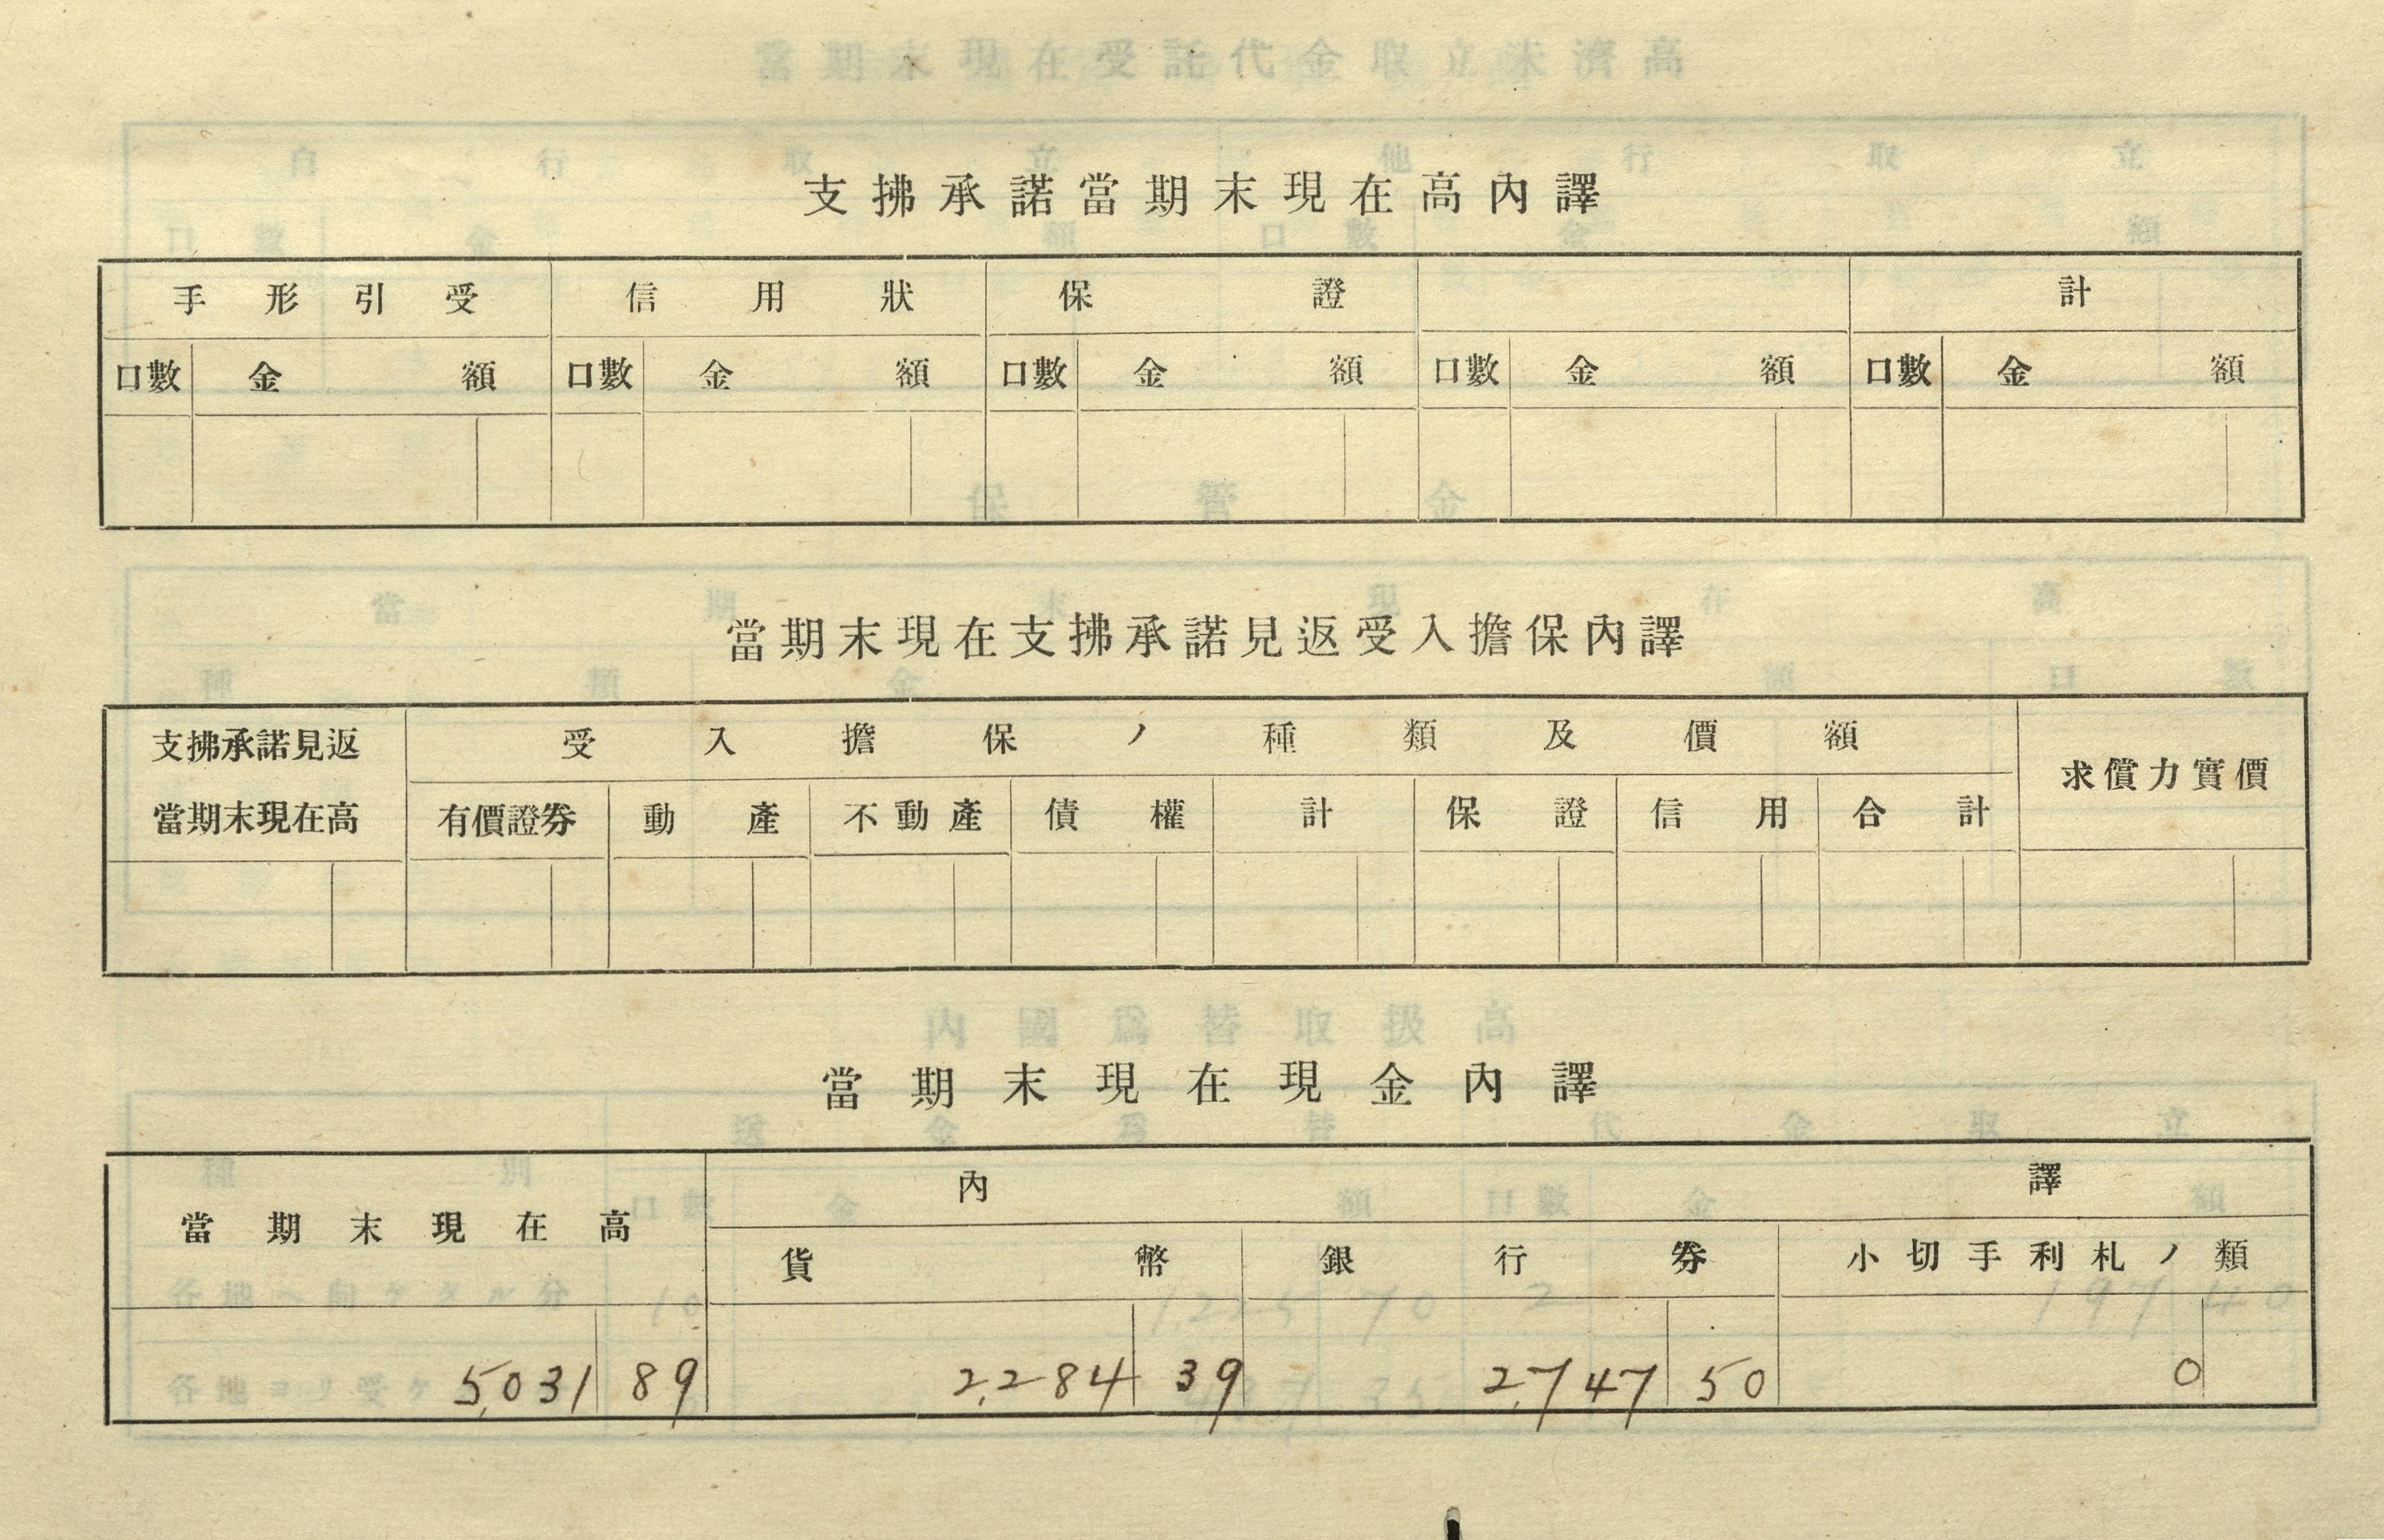 支拂承諾當期末現在高內譯
手形引受 信用狀 保證 計
口數 金額 口數 金額 口數 金額 口數 金額 口數 金額
當期末現在支拂承諾見返受入擔保內譯
支拂承諾見返 受入擔保ノ種類及價額 求償力實價
當期末現在高 有價證券 動產 不動產 債權 計 保證 信用 合計
當期末現在現金內譯
當期末現在高 內譯
貨幣 銀行券 小切手利札ノ類
5,031 89 2,284 39 2,747 50 0